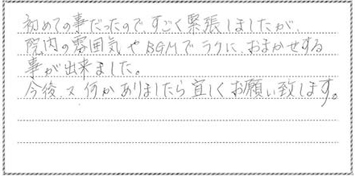 初めての事だったので、すごく緊張しましたが
院内の雰囲気やBGMでラクに、おまかせする
事が出来ました。
今後又何かありましたら宜しくお願い致します。